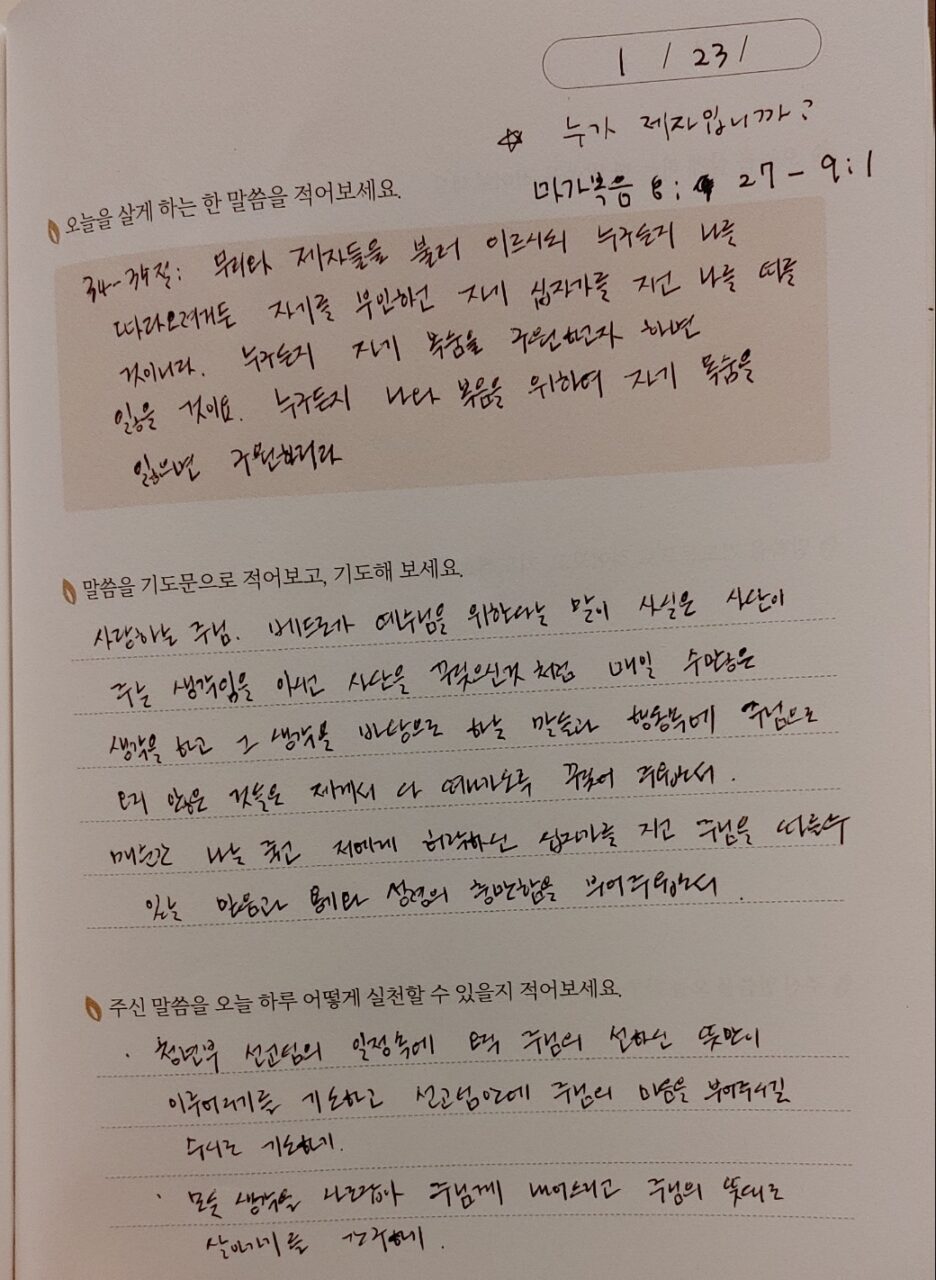 1 / 23 /
☆ 누가 제자입니까?
마가복음 8: 27 - 9:1
오늘을 살게 하는 한 말씀을 적어보세요.
34-35절: 무리와 제자들을 불러 이르시되 누구든지 나를
따라오려거든 자기를 부인하고 자기 십자가를 지고 나를 따를
것이니라. 누구든지 자기 목숨을 구원하고자 하면
잃을 것이요. 누구든지 나와 복음을 위하여 자기 목숨을
잃으면 구원하리라
말씀을 기도문으로 적어보고, 기도해 보세요.
사랑하는 주님. 베드로가 예수님을 위한다는 말이 사실은 사탄이
주는 생각임을 아시고 사탄을 꾸짖으신것 처럼 매일 수많은
생각을 하고 그 생각을 바탕으로 하는 말들과 행동들에 주님으로
오지 않은 것들은 제게서 다 떠나가도록 꾸짖어 주옵소서.
매순간 나는 죽고 저에게 허락하신 십자가를 지고 주님을 따를수
있는 믿음과 용기와 성령의 충만함을 부어주옵소서.
주신 말씀을 오늘 하루 어떻게 실천할 수 있을지 적어보세요.
· 청년부 선교팀의 일정속에 오직 주님의 선하신 뜻만이
이루어지기를 기도하고 선교팀안에 주님의 마음을 부어주시길
수시로 기도하기.
· 모든 생각을 사로잡아 주님께 내어드리고 주님의 뜻대로
살아가기를 간구하기.